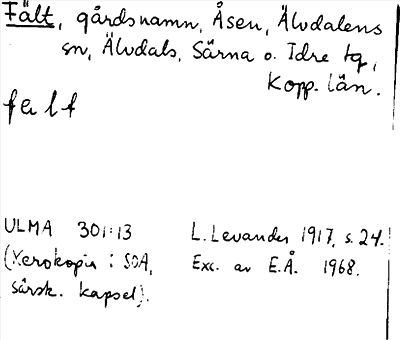 Fält, gårdsnamn, Åsen, Älvdalens
sn, Älvdals, Särna o. Idre tg,
Kopp. län.
falt
ULMA 301:13
(Xerokopia i SOA,
särsk. kapsel).
L. Levander 1917, s. 24.
Exc. av E.Å. 1968.